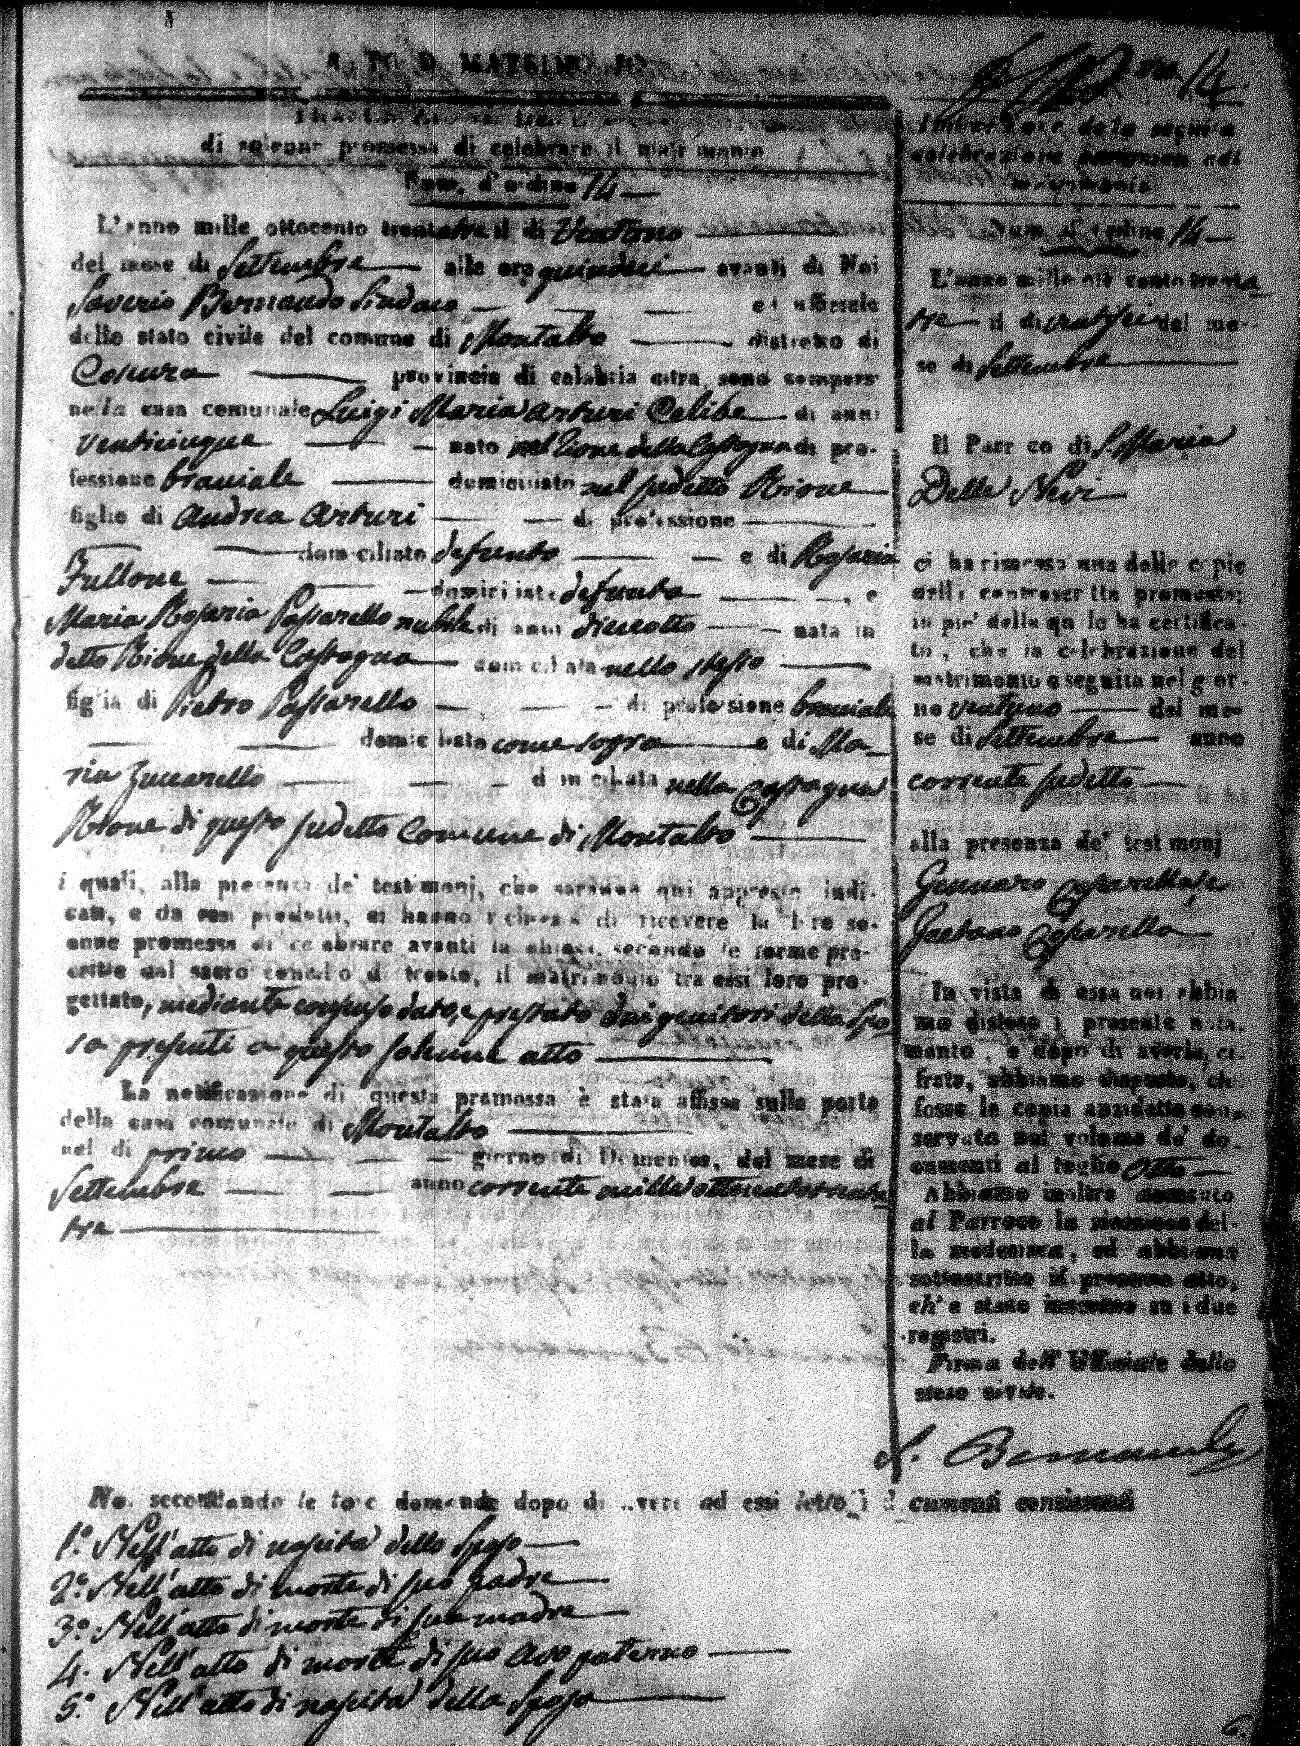 ATTO DI MATRIMONIO
Num. 14.
di solenne promessa di celebrare il matrimonio
Num. d'ordine 14
L'anno mille ottocento trentatre il dì Ventuno
del mese di Settembre alle ore quindeci avanti di Noi
Saverio Bernaudo Sindaco ed uffiziale
dello stato civile del comune di Montalto distretto di
Cosenza provincia di calabria citra sono compars
nella casa comunale Luigi Maria Arturi Celibe di anni
venticinque nato nel Rione della Castagna di pro-
fessione bracciale domiciliato nel sudetto Rione
figlio di Andrea Arturi di professione
domiciliato defunto e di Rosaria
Fullone domiciliata defunta, e
Maria Rosaria Passarello nubile di anni dieciotto nata in
detto Rione della Castagna domiciliata nello stesso
figlia di Pietro Passarello di professione bracciale
domiciliato come sopra e di Ma_
ria Zuccarello domiciliata nella Castagna
Rione di questo sudetto Comune di Montalto
i quali, alla presenza de' testimonj, che saranno qui appresso indi-
cati, e da essi prodotti, ci hanno richiesto di ricevere la loro so-
enne promessa di celebrare avanti la chiesa, secondo le forme pre-
critte dal sacro concilio di trento, il matrimonio tra essi loro pro-
gettato, mediante consenso dato, e prestato dai genitori della Spo
sa presenti a questo solenne atto
La notificazione di questa promessa è stata affissa sulla porta
della casa comunale di Montalto
nel dì primo giorno di Domenica, del mese di
Settembre anno corrente mille ottocentotrenta
tre
Indicazione della seguita
celebrazione canonica del
matrimonio
Num. d'ordine 14
L'anno mille ottocento trenta
tre il dì ventisei del me-
se di Settembre
Il Parroco di S. Maria
Delle Nevi
ci ha rimessa una delle copie
della controscritta promessa;
in piè della quale ha certifica-
to, che la celebrazione del
matrimonio è seguita nel gior-
no ventuno del me-
se di Settembre anno
corrente sudetto
alla presenza de' testimonj
Gennaro
Gaetano
In vista di essa noi abbia
mo disteso il presente nota-
mento, e dopo di averla ci-
frata, abbiamo disposto, che
fosse la copia anzidetta con-
servata nel volume de' do-
cumenti al foglio Otto
Abbiamo inoltre accusato
al Parroco la ricezione del-
la medesima, ed abbiamo
sottoscritto il presente atto,
ch'è stato inscritto su i due
registri.
Firma dell'Uffiziale dello
stato civile.
S. Bernaudo
No. secondando le loro domande dopo di avere ad essi letto i documenti consistenti
1.° Nell'atto di nascita dello Sposo
2.° Nell'atto di morte di suo padre
3.° Nell'atto di morte di sua madre
4. Nell'atto di morte di suo avo paterno
5.° Nell'atto di nascita della Sposa
6.